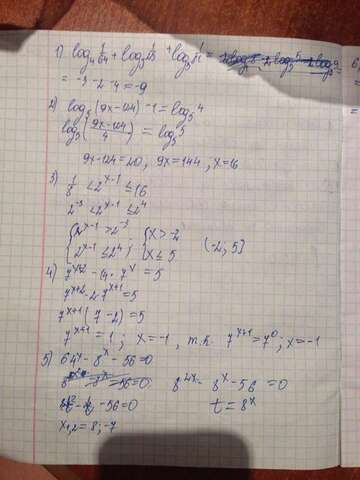 1) log₄ 1/64 + log₅ 1/25 + log₃ 1/81 =
= -3-2-4=-9
2) log₅(9x-124)-1=log₅4
log₅(9x-124/4) = log₅5
9x-124=20, 9x=144, x=16
3) 1/8 < 2^(x-1) ≤ 16
2⁻³ < 2^(x-1) ≤ 2⁴
{2^(x-1) > 2⁻³ ; {x > -2
{2^(x-1) ≤ 2⁴ ; {x ≤ 5 (-2, 5]
4) 7^(x+2) - 14·7^x = 5
7^(x+2) - 2·7^(x+1) = 5
7^(x+1) (7-2) = 5
7^(x+1) = 1; x=-1, т.к. 7^(x+1) = 7⁰; x=-1
5) 64^x - 8^x - 56=0
8^(2x) - 8^x - 56 = 0
t² - t - 56=0 t = 8^x
x₁,₂ = 8; -7